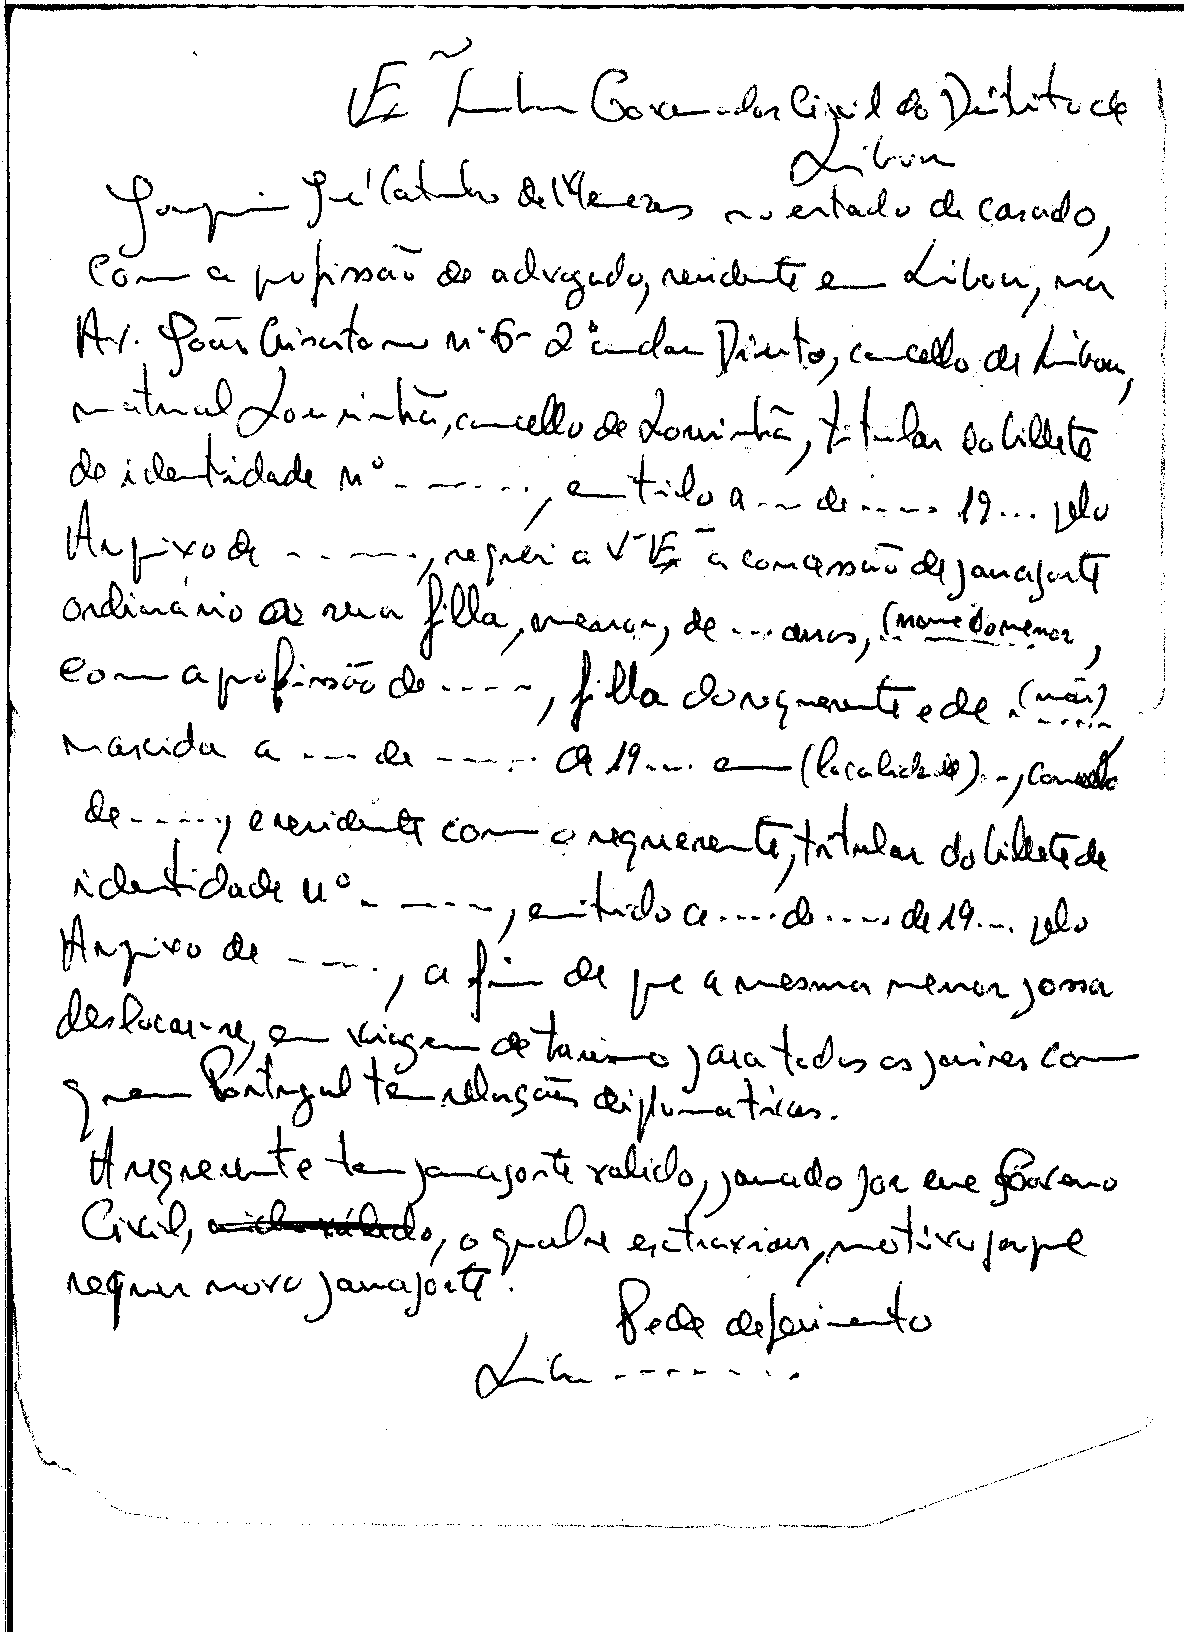 Exmº Senhor Governador Civil do Distrito de
Lisboa
Joaquim José Catanho de Menezes no estado de casado,
com a profissão de advogado, residente em Lisboa, na
Av. João Crisóstomo nº 6 - 2º andar Direito, concelho de Lisboa,
natural Lourinhã, concelho de Lourinhã, titular do bilhete
de identidade nº - ------, emitido a ... de ----- 19... pelo
Arquivo de - - ----, requer a V. Exª a concessão de passaporte
ordinário a sua filha, menor, de ... anos, (nome do menor),
com a profissão de ----, filha do requerente e de (mãe)
nascida a --- de ----- de 19... em (localidade)..., concelho
de -----, e residente com o requerente, titular do bilhete de
identidade nº - -----, emitido a .... de .... de 19... pelo
Arquivo de ----, a fim de que a mesma menor possa
deslocar-se, em viagem de turismo para todos os países com
quem Portugal tem relações diplomáticas.
A requerente tem passaporte valido, passado por esse Governo
Civil, o qual se extraviou, motivo porque
requer novo passaporte.
Pede deferimento
Lisboa --------